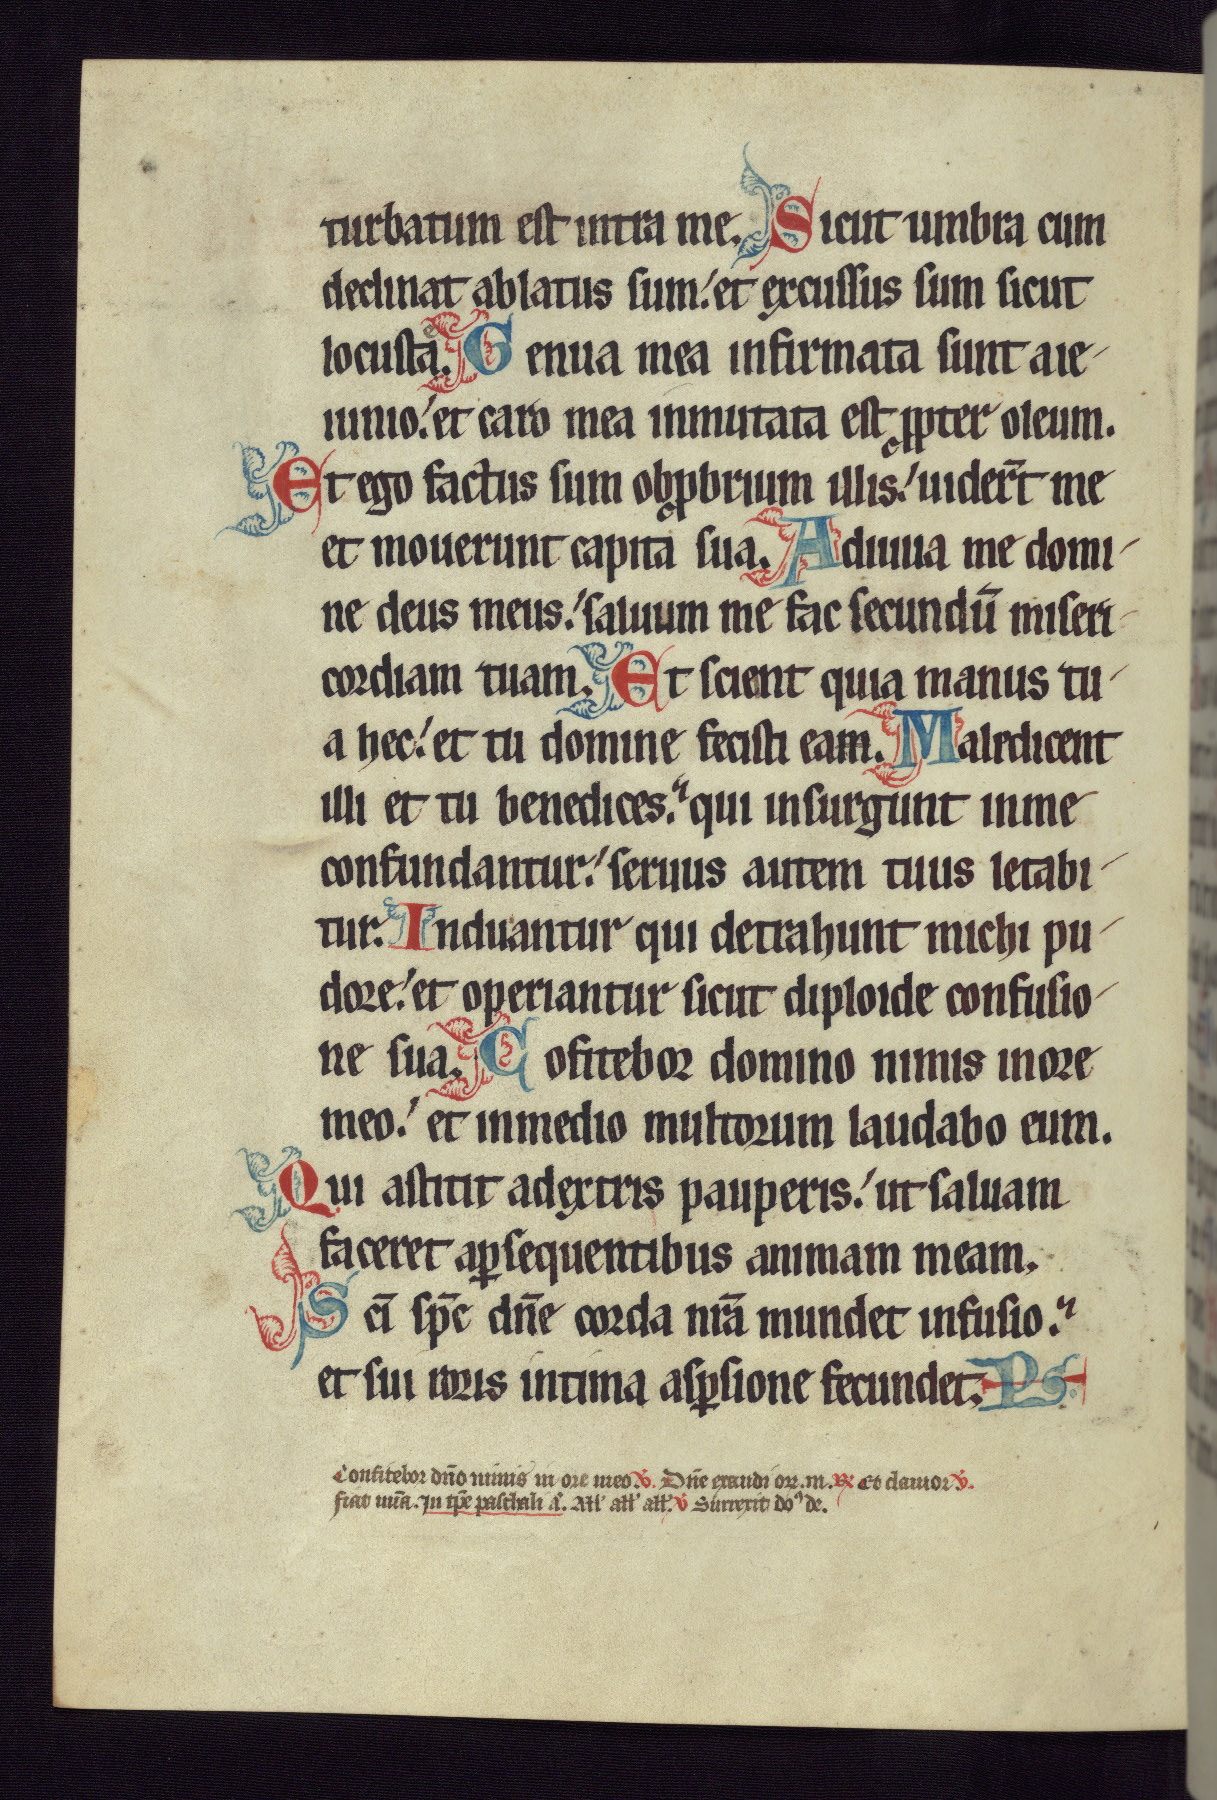 turbatum est intra me. Sicut umbra cum
declinat ablatus sum: et excussus sum sicut
locusta. Genua mea infirmata sunt a ie-
iunio: et caro mea inmutata est ꝓpter oleum.
Et ego factus sum obꝓbrium illis: uiderūt me
et mouerunt capita sua. Adiuua me domi-
ne deus meus: saluum me fac secundū miseri-
cordiam tuam. Et scient quia manus tu-
a hec: et tu domine fecisti eam. Maledicent
illi et tu benedices: qui insurgunt in me
confundantur: seruus autem tuus letabi-
tur. Induantur qui detrahunt michi pu-
dore: et operiantur sicut diploide confusio-
ne sua. Cofitebor domino nimis in ore
meo: et in medio multorum laudabo eum.
Qui astitit a dextris pauperis: ut saluam
faceret a ꝑsequentibus animam meam.
Sc̄i sp̄c dn̄e corda nr̄a mundet infusio:
et sui roris intima asꝑsione fecundet. Ps.
Confitebor dn̄o nimis in ore meo. V. Dn̄e exaudi or. m. R Et clamor V.
fiat mīa. In tp̄e paschali a. All' all' all'. V Surrexit do de.